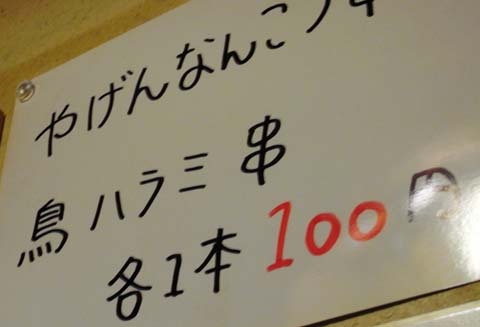 やげんなんこつ
鳥ハラミ串
各1本100円